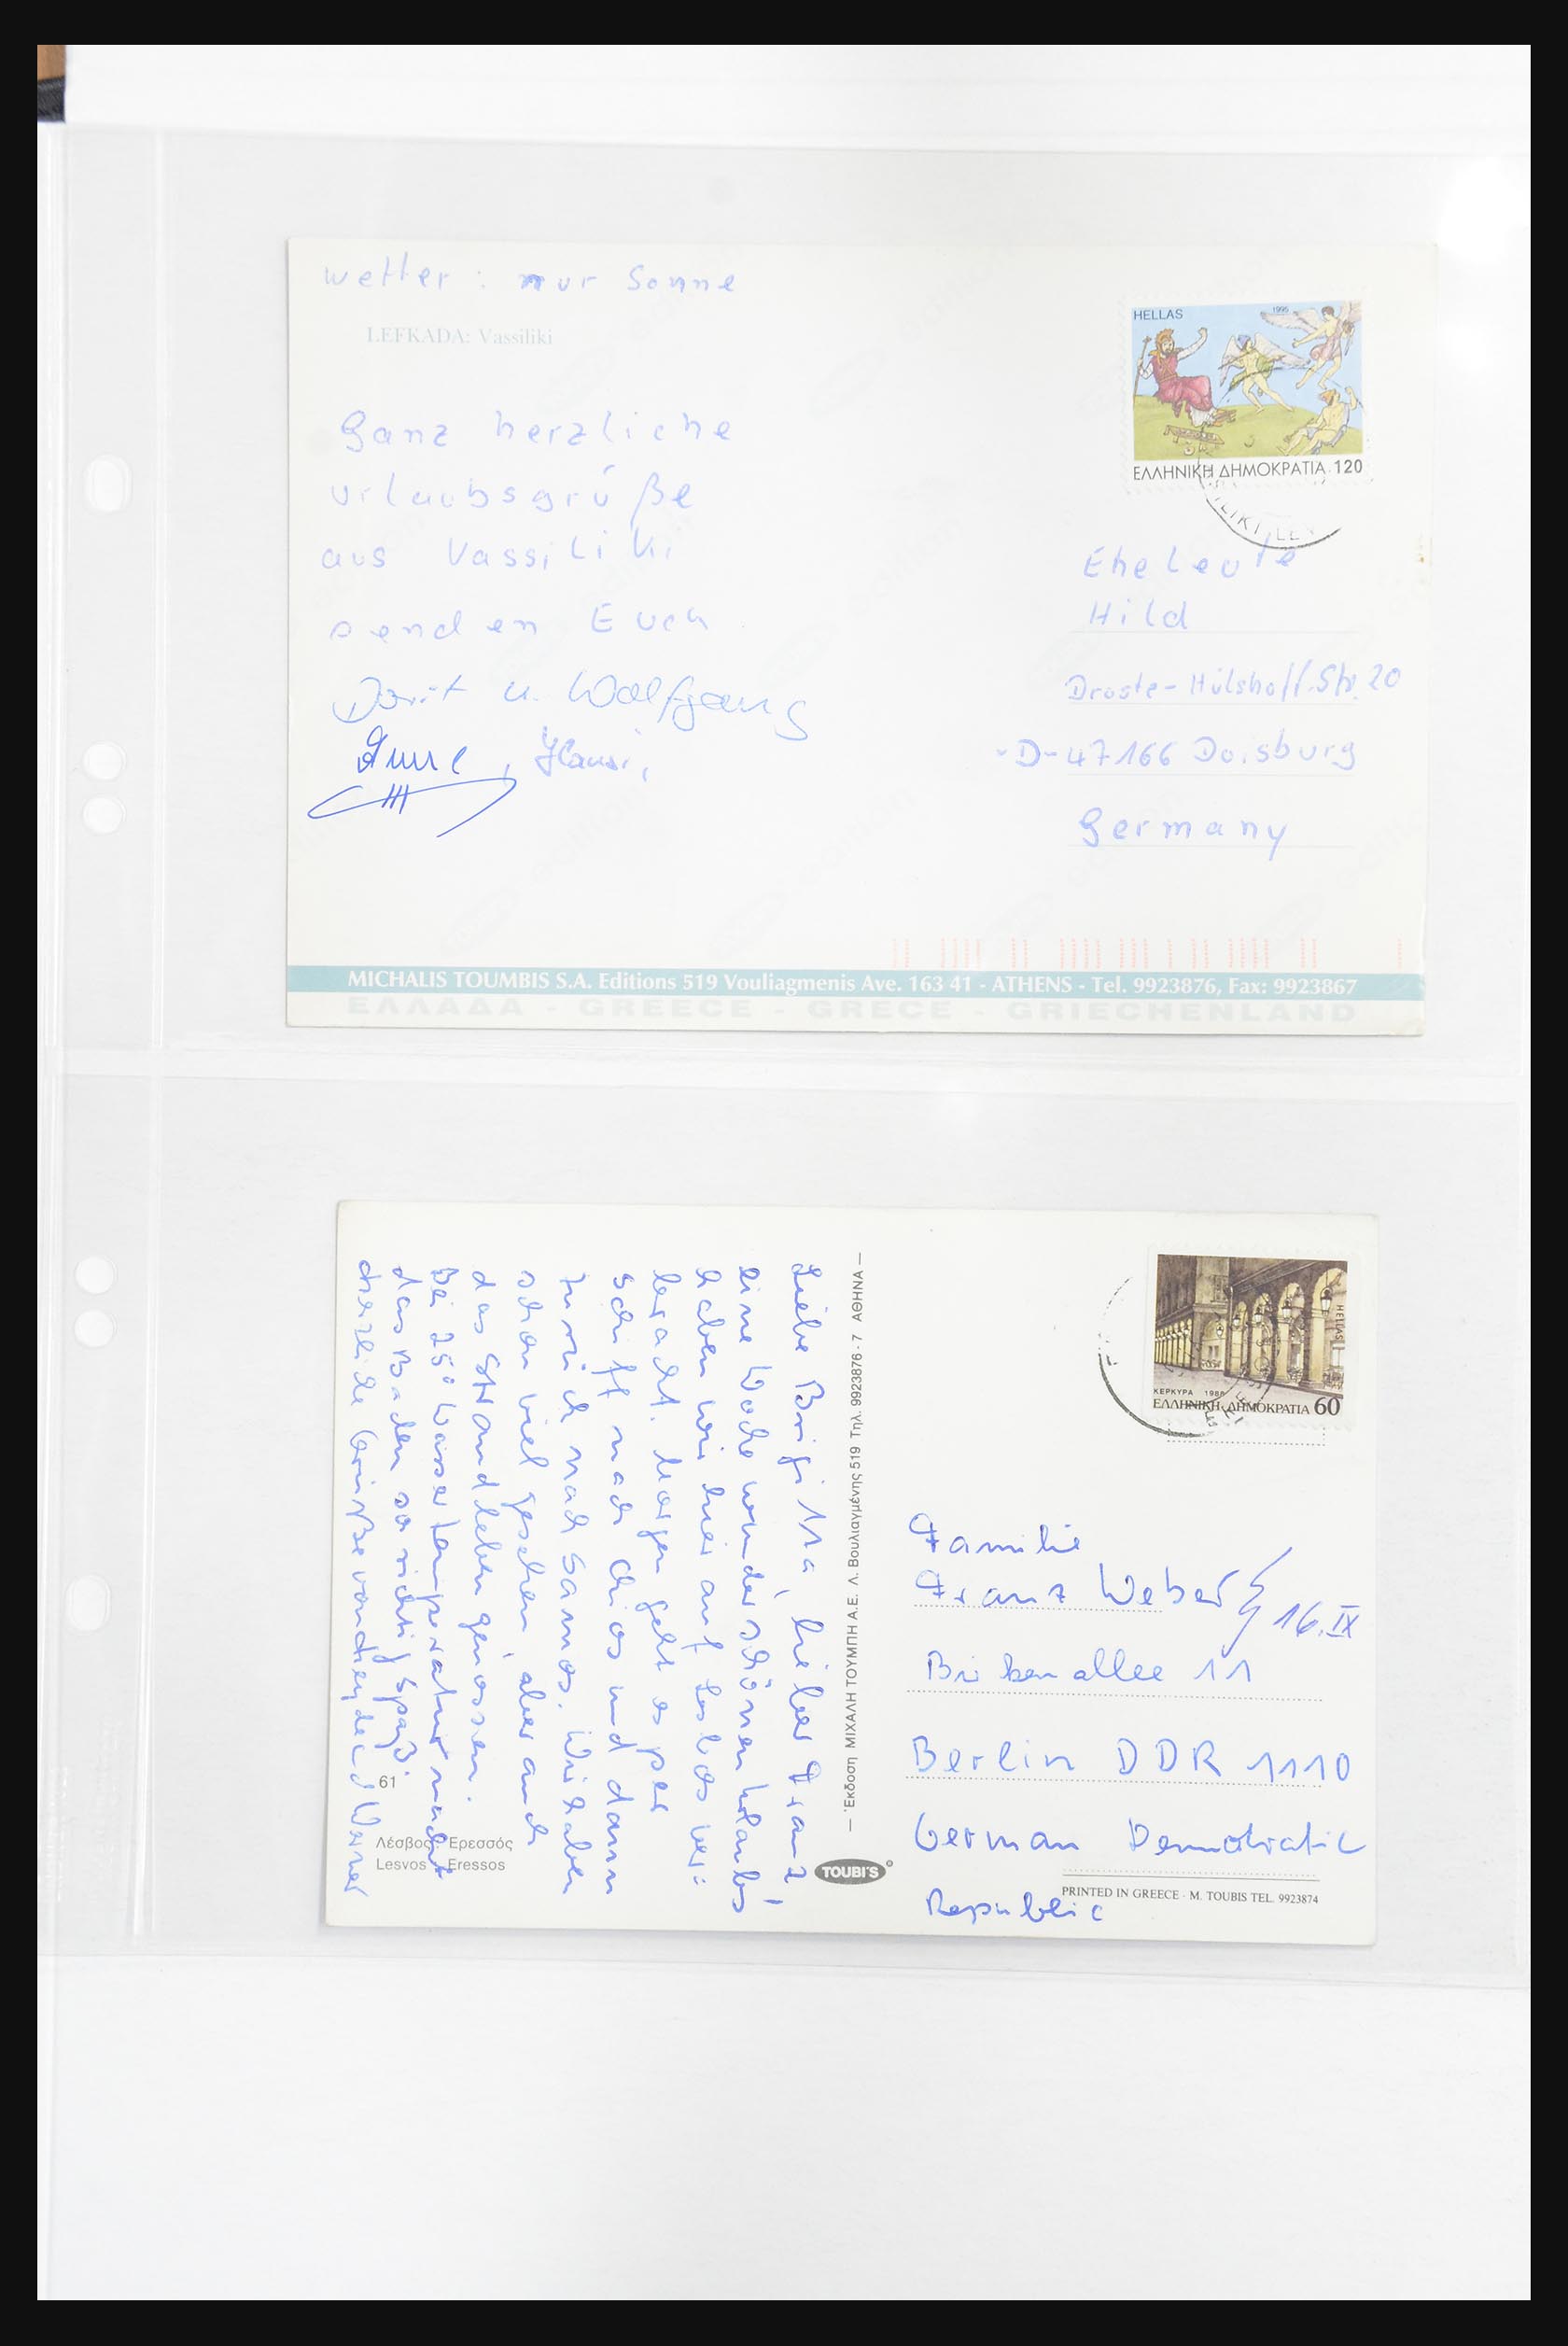 Wetter : nur Sonne
LEFKADA: Vassiliki
Ganz herzliche
Urlaubsgrüße
aus Vassiliki
senden Euch
Dorit u. Wolfgang
Anne, Hansi,
HELLAS
1995
ΕΛΛΗΝΙΚΗ ΔΗΜΟΚΡΑΤΙΑ 120
Eheleute
Hild
Droste-Hülshoff.Str. 20
-D-47166 Duisburg
Germany
MICHALIS TOUMBIS S.A. Editions 519 Vouliagmenis Ave. 163 41 - ATHENS - Tel. 9923876, Fax: 9923867
ΕΛΛΑΔΑ - GREECE - GRECE - GRIECHENLAND
Liebe Brigitta, lieber Franz,
eine Woche wunderschönen Urlaubs
haben wir hier auf Lesbos ver=
bracht. Morgen geht es per
Schiff nach Chios und dann
zurück nach Samos. Wir haben
schon viel gesehen, aber auch
das Strandleben genossen.
Bei 25° Wassertemperatur macht
das Baden so richtig Spaß.
Herzliche Grüße von Werner
61
Λέσβος Ερεσσός
Lesvos Eressos
— Έκδοση ΜΙΧΑΛΗ ΤΟΥΜΠΗ Α.Ε. Λ. Βουλιαγμένης 519 Τηλ. 9923876 - 7 ΑΘΗΝΑ —
TOUBI'S
HELLAS
ΚΕΡΚΥΡΑ 1988
ΕΛΛΗΝΙΚΗ ΔΗΜΟΚΡΑΤΙΑ 60
Familie
Franz Weber
16. IX
Birkenallee 11
Berlin DDR 1110
German Democratic
Republic
PRINTED IN GREECE - M. TOUBIS TEL. 9923874